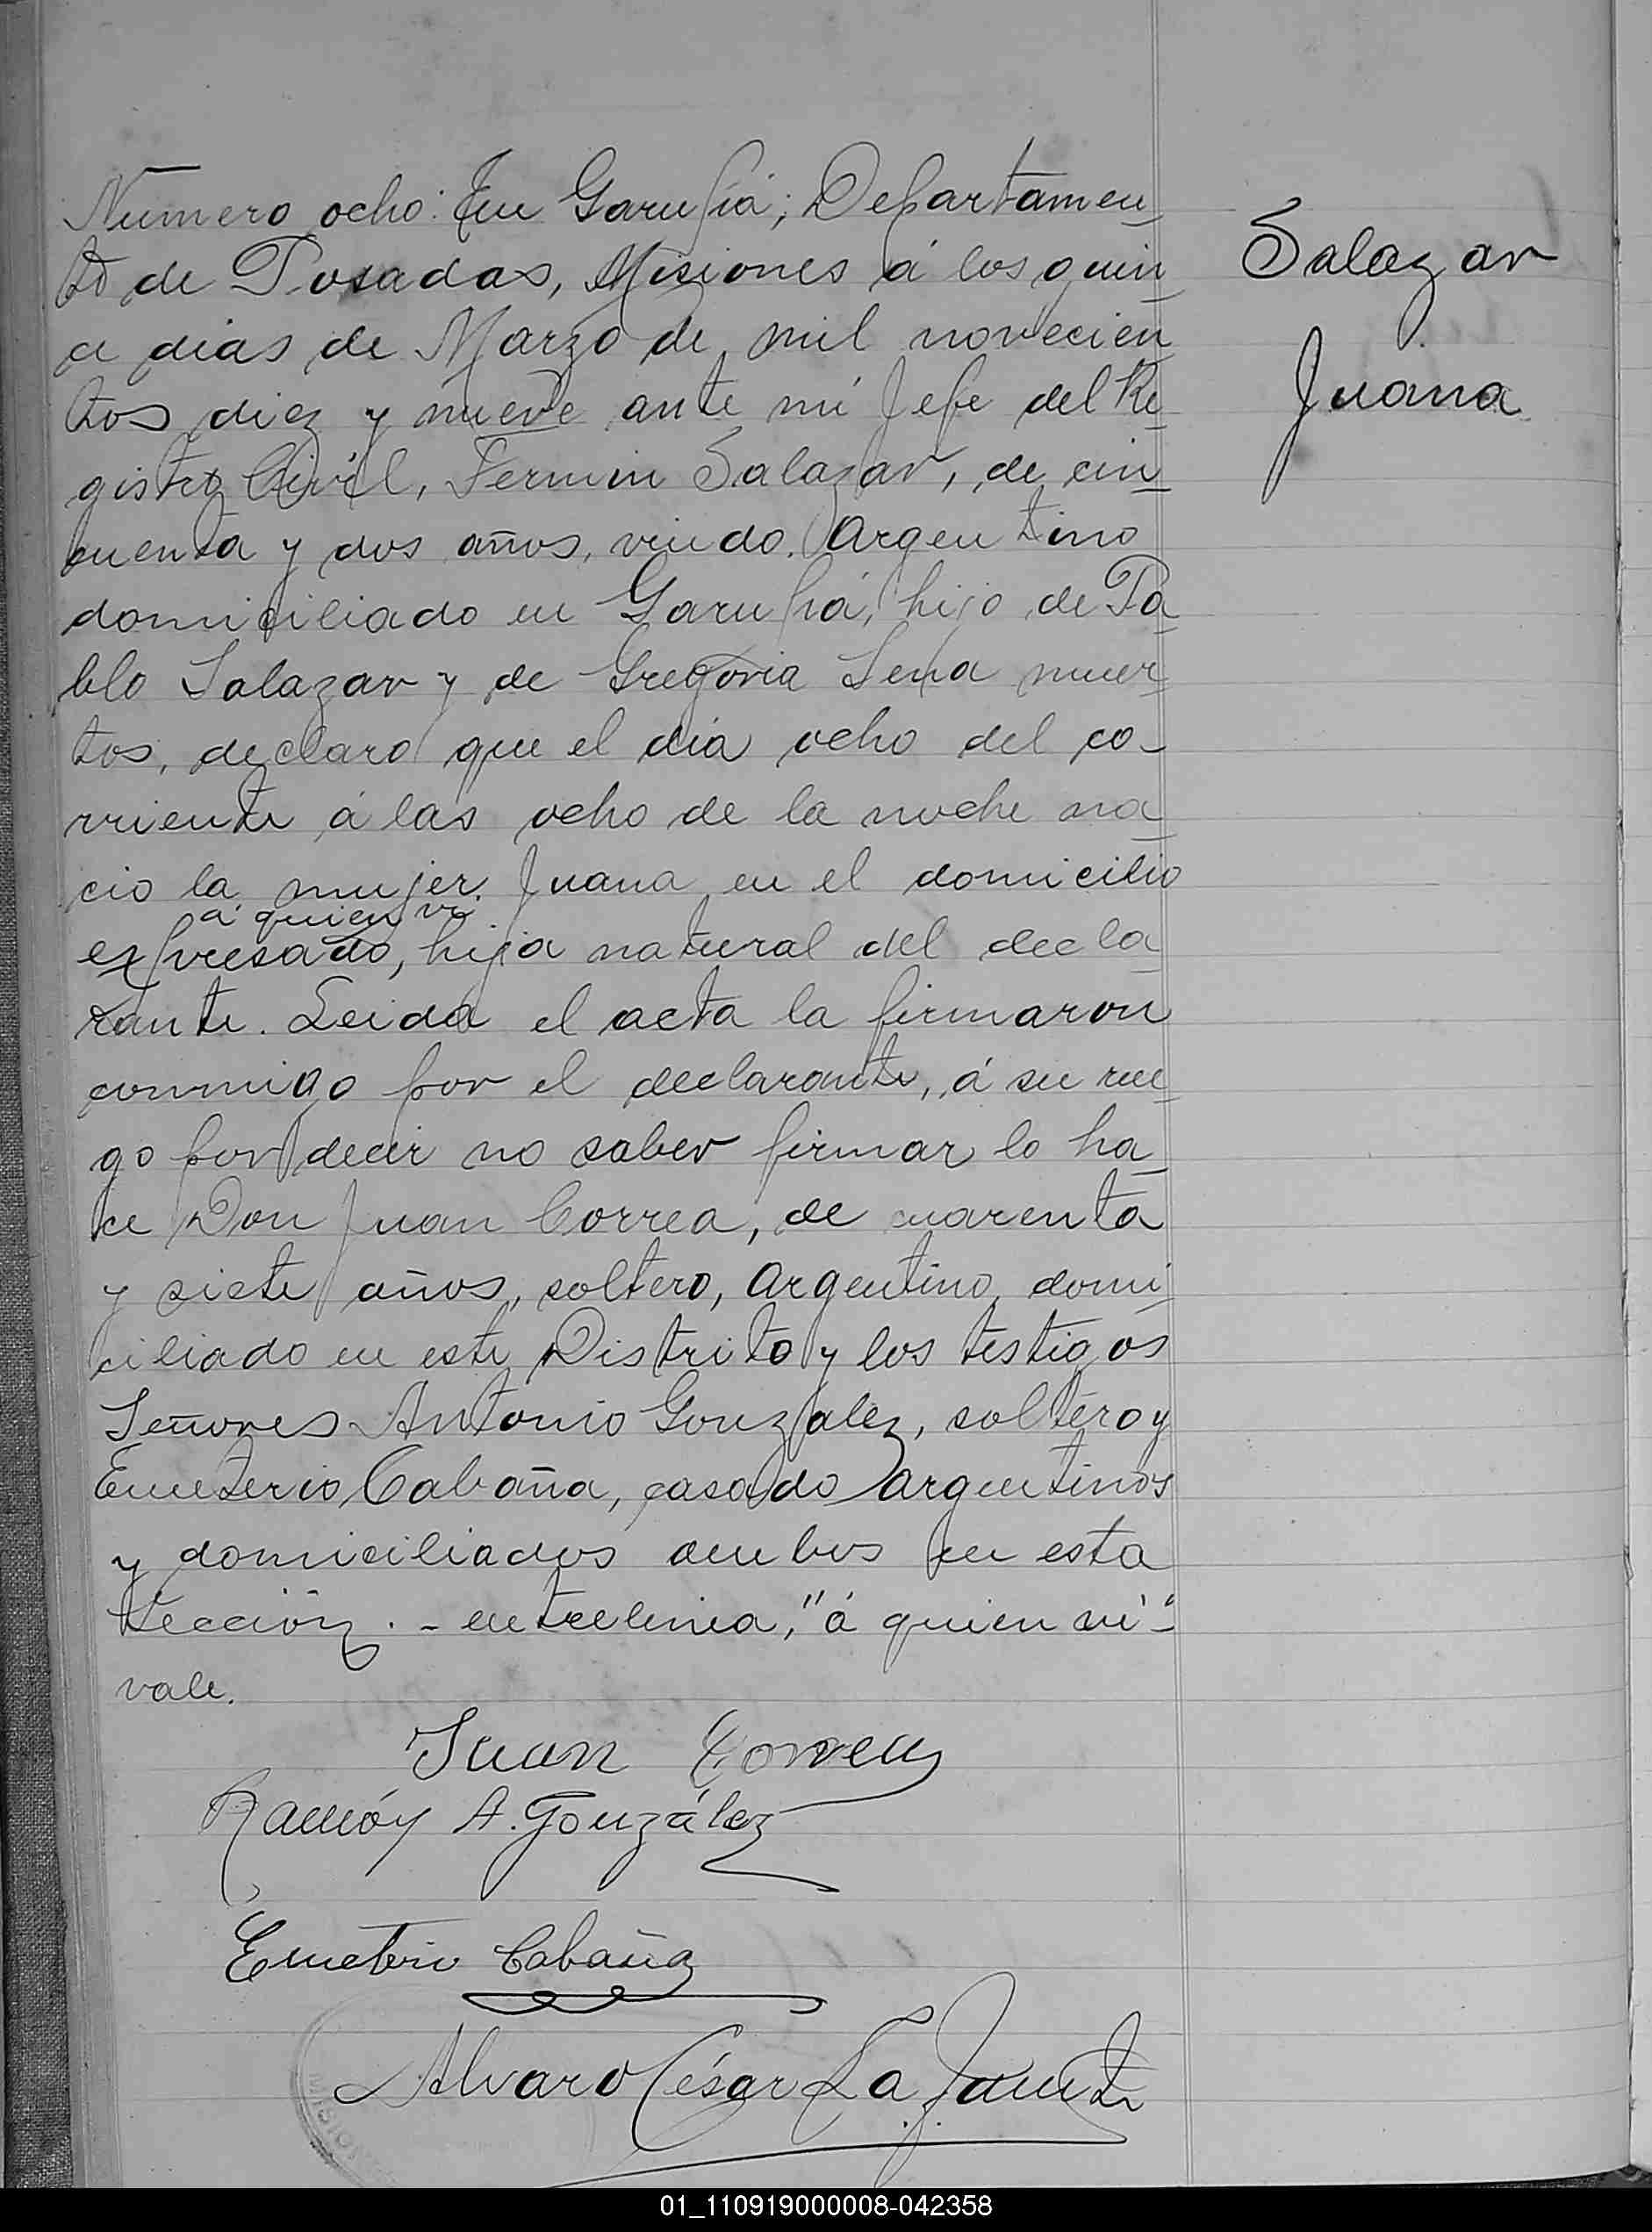 Número ocho: En Garupá; Departamen
to de Posadas, Misiones á los quin
ce dias de Marzo de mil novecien
tos diez y nueve ante mi Jefe del Re
gistro Civil, Fermin Salazar, de cin
cuenta y dos años, viudo, Argentino
domiciliado en Garupá, hijo de Pa
blo Salazar y de Gregoria Sena muer
tos, declaro que el dia ocho del co-
rriente á las ocho de la noche na
cio la mujer Juana en el domicilio
á quien vi
expresado, hija natural del decla
rante. Leida el acta la firmaron
conmigo por el declarante, á su rue
go por decir no saber firmar lo ha
ce Don Juan Correa, de cuarenta
y siete años, soltero, Argentino, domi
ciliado en este Distrito y los testigos
Señores Antonio Gonzalez, soltero y
Emeterio Cabaña, casado Argentinos
y domiciliados ambos en esta
Sección. - entrelinea, "á quien vi"-
vale.
Juan Correa
Ramón A. González
Emeterio Cabaña
Alvaro César La
MISIONES
Salazar
Juana
01_110919000008-042358